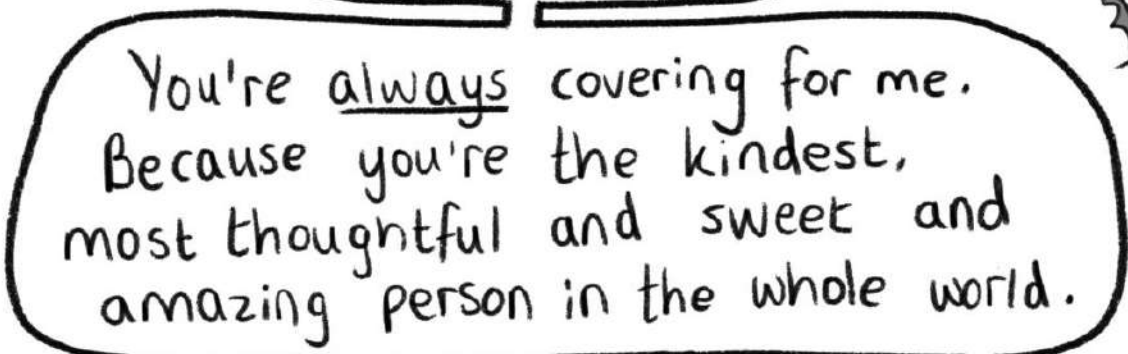 You're always covering for me.
Because you're the kindest,
most thoughtful and sweet and
amazing person in the whole world.